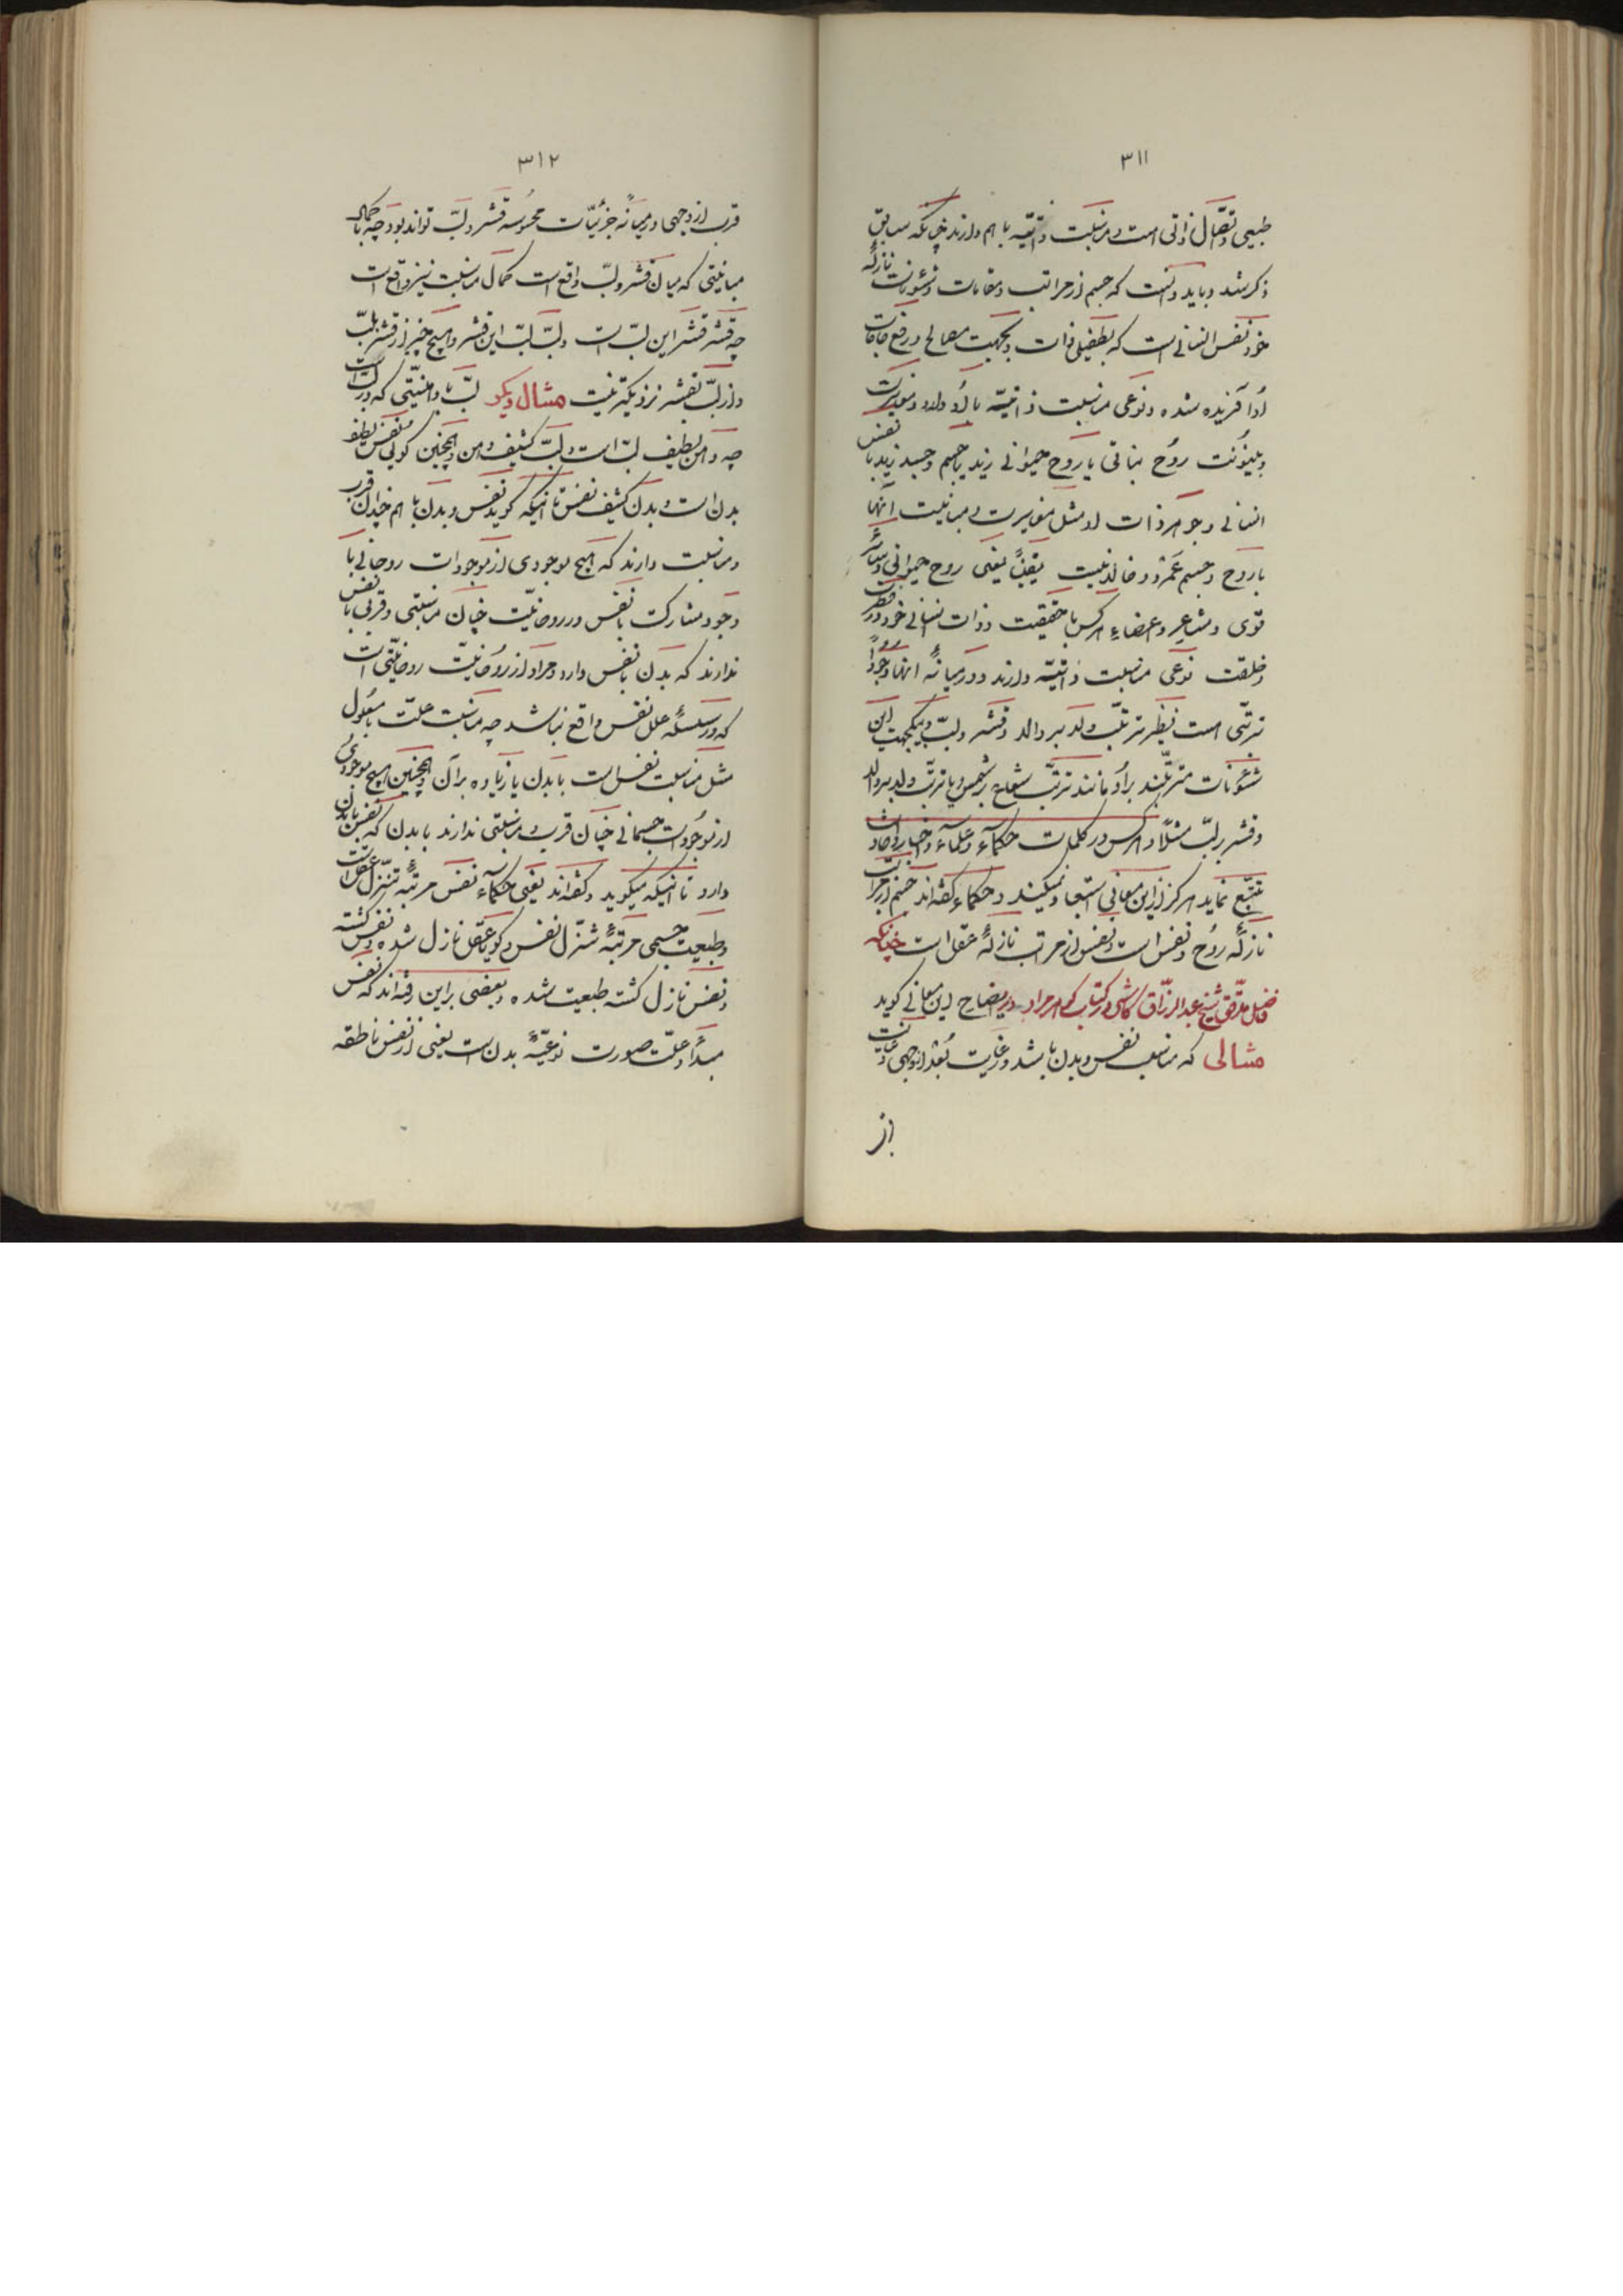 ۳۱۱
طبیعی و اتصال ذاتی است و مناسبت ذاتیّه با هم دارند چنانکه سابق
ذکر شد و باید دانست که جسم از مراتب و مقامات و شئونات نازلهٔ
خود نفس انسانی است که بطفیلی ذات و بجهت مصالح و رفع حاجات
او آفریده شده و نوعی مناسبت ذاتیّه با او دارد و مغایرت
و بینونت روح نباتی یا روح حیوانی زید یا جسم و جسد زید با نفس
انسانی و جوهر ذات او مثل مغایرت و مباینت آنها
با روح و جسم عمرو و خالد نیست یقیناً یعنی روح حیوانی و سائر
قوی و مشاعر و اعضاء هر کس با حقیقت و ذات انسانی خود در فطرت
و خلقت نوعی مناسبت ذاتیّه دارند و در میانهٔ آنها وجوداً
ترتبی است نظیر ترتب ولد بر والد و قشر و لبّ و بیکجهت این
شئونات مترتبند بر او مانند ترتب شعاع بر شمس و یا ترتب ولد بر والد
و قشر بر لبّ مثلاً و هر کس در کلمات حکماء و علماء و اخبار و احادیث
تتبّع نماید هرگز از این معانی استبعاد نمیکند و حکماء گفته‌اند جسم از مراتب
نازلهٔ روح و نفس است و نفس از مراتب نازلهٔ عقل است چنانکه
فاضل مدقق شیخ عبد الرزّاق کاشی در کتاب گوهر مراد در ایضاح این معانی گوید
مثالی که مناسب نفس و بدن باشد و غایت بُعد از وجهی و غایت
از
۳۱۲
قرب از وجهی در میانهٔ جزئیّات محسوسه قشر و لبّ تواند بود چه با کمال
مباینتی که میان قشر و لبّ واقع است کمال مناسبت نیز واقع است
چه قشر قشر این لبّ است و لبّ لبّ این قشر و هیچ چیز از قشر بلبّ
و از لبّ بقشر نزدیکتر نیست مثال دیگر لبّ با دهنیّتی که در لبّ است
چه دهن لطیف لبّ است و لبّ کثیف دهن و همچنین گوئی نفس لطیف
بدن است و بدن کثیف نفس تا آنیکه گوید نفس و بدن با هم چندان قرب
و مناسبت دارند که هیچ موجودی از موجودات روحانی با
وجود مشارکت با نفس در روحانیّت چنان مناسبتی و قربی با نفس
ندارند که بدن با نفس دارد و مراد از روحانیّت روحانیّتی است
که در سلسلهٔ علل نفس واقع نباشد چه مناسبت علّت با معلول
مثل مناسبت نفس است با بدن یا زیاده بر آن و همچنین هیچ موجودی
از موجودات جسمانی چنان قرب و مناسبتی ندارند با بدن که نفس با بدن
دارد تا آنیکه میگوید و گفته‌اند یعنی حکماء نفس مرتبهٔ تنزّل عقل است
و طبیعت جسمی مرتبهٔ تنزّل نفس و گویا عقل نازل شده و نفس گشته
و نفس نازل گشته طبیعت شده و بعضی بر این رفته‌اند که نفس
مبدأ و علّت صورت نوعیّهٔ بدن است یعنی از نفس ناطقه